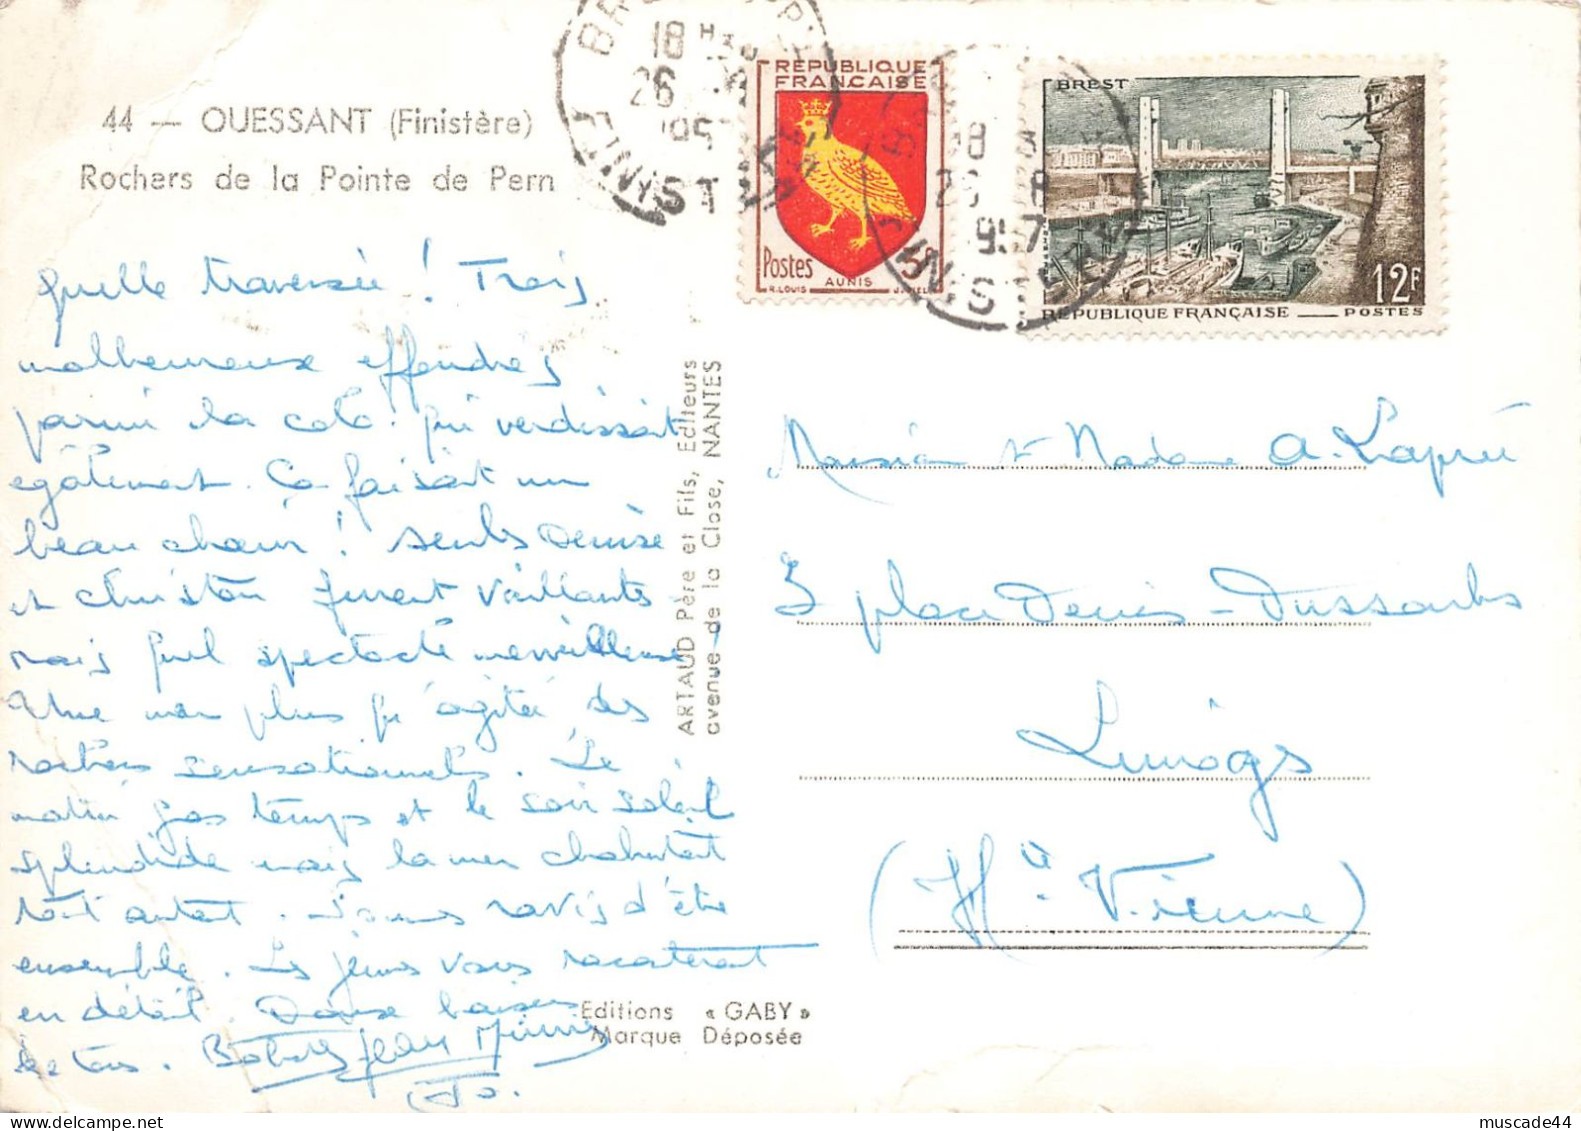 44 — OUESSANT (Finistère)
Rochers de la Pointe de Pern
Quelle traversée ! Trois
malheureux effondrés
parmi la colo. qui verdissait
également. Ça faisait un
beau chœur ! Seuls Denise
et Christon furent vaillants
mais quel spectacle merveilleux !
Une mer plus qu'agitée, des
rochers sensationnels. Le
matin gros temps et le soir soleil
splendide mais la mer chahutait
tout autant. Sommes ravis d'être
ensemble. Les jeunes vous raconteront
en détail. Doux baisers
de tous. Jean
Jo.
ARTAUD Père et Fils, Editeurs
avenue de la Close, NANTES
Editions « GABY »
Marque Déposée
18 H
26
FINISTÈRE
RÉPUBLIQUE
FRANÇAISE
Postes 5F
AUNIS
R. LOUIS
18 H
26 8
1957
FINISTÈRE
BREST
12F
RÉPUBLIQUE FRANÇAISE — POSTES
Monsieur et Madame A. Lapré
3 place Denis-Dussoubs
Limoges
(Hte Vienne)
muscade44